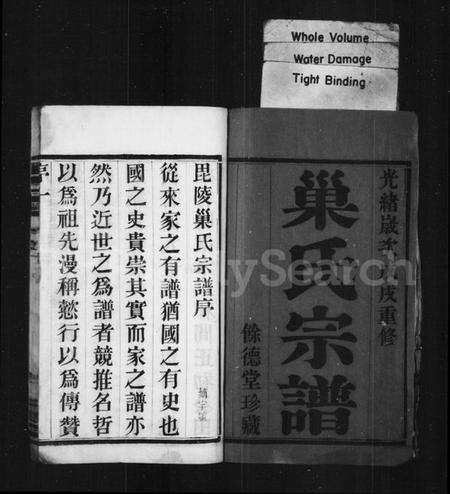 Whole Volume
Water Damage
Tight Binding
光緒歲次戊戌重修
巢氏宗譜
餘德堂珍藏
毘陵巢氏宗譜序
從來家之有譜猶國之有史也
國之史貴崇其實而家之譜亦
然乃近世之為譜者競推名哲
以為祖先漫稱懿行以為傳贊
序一